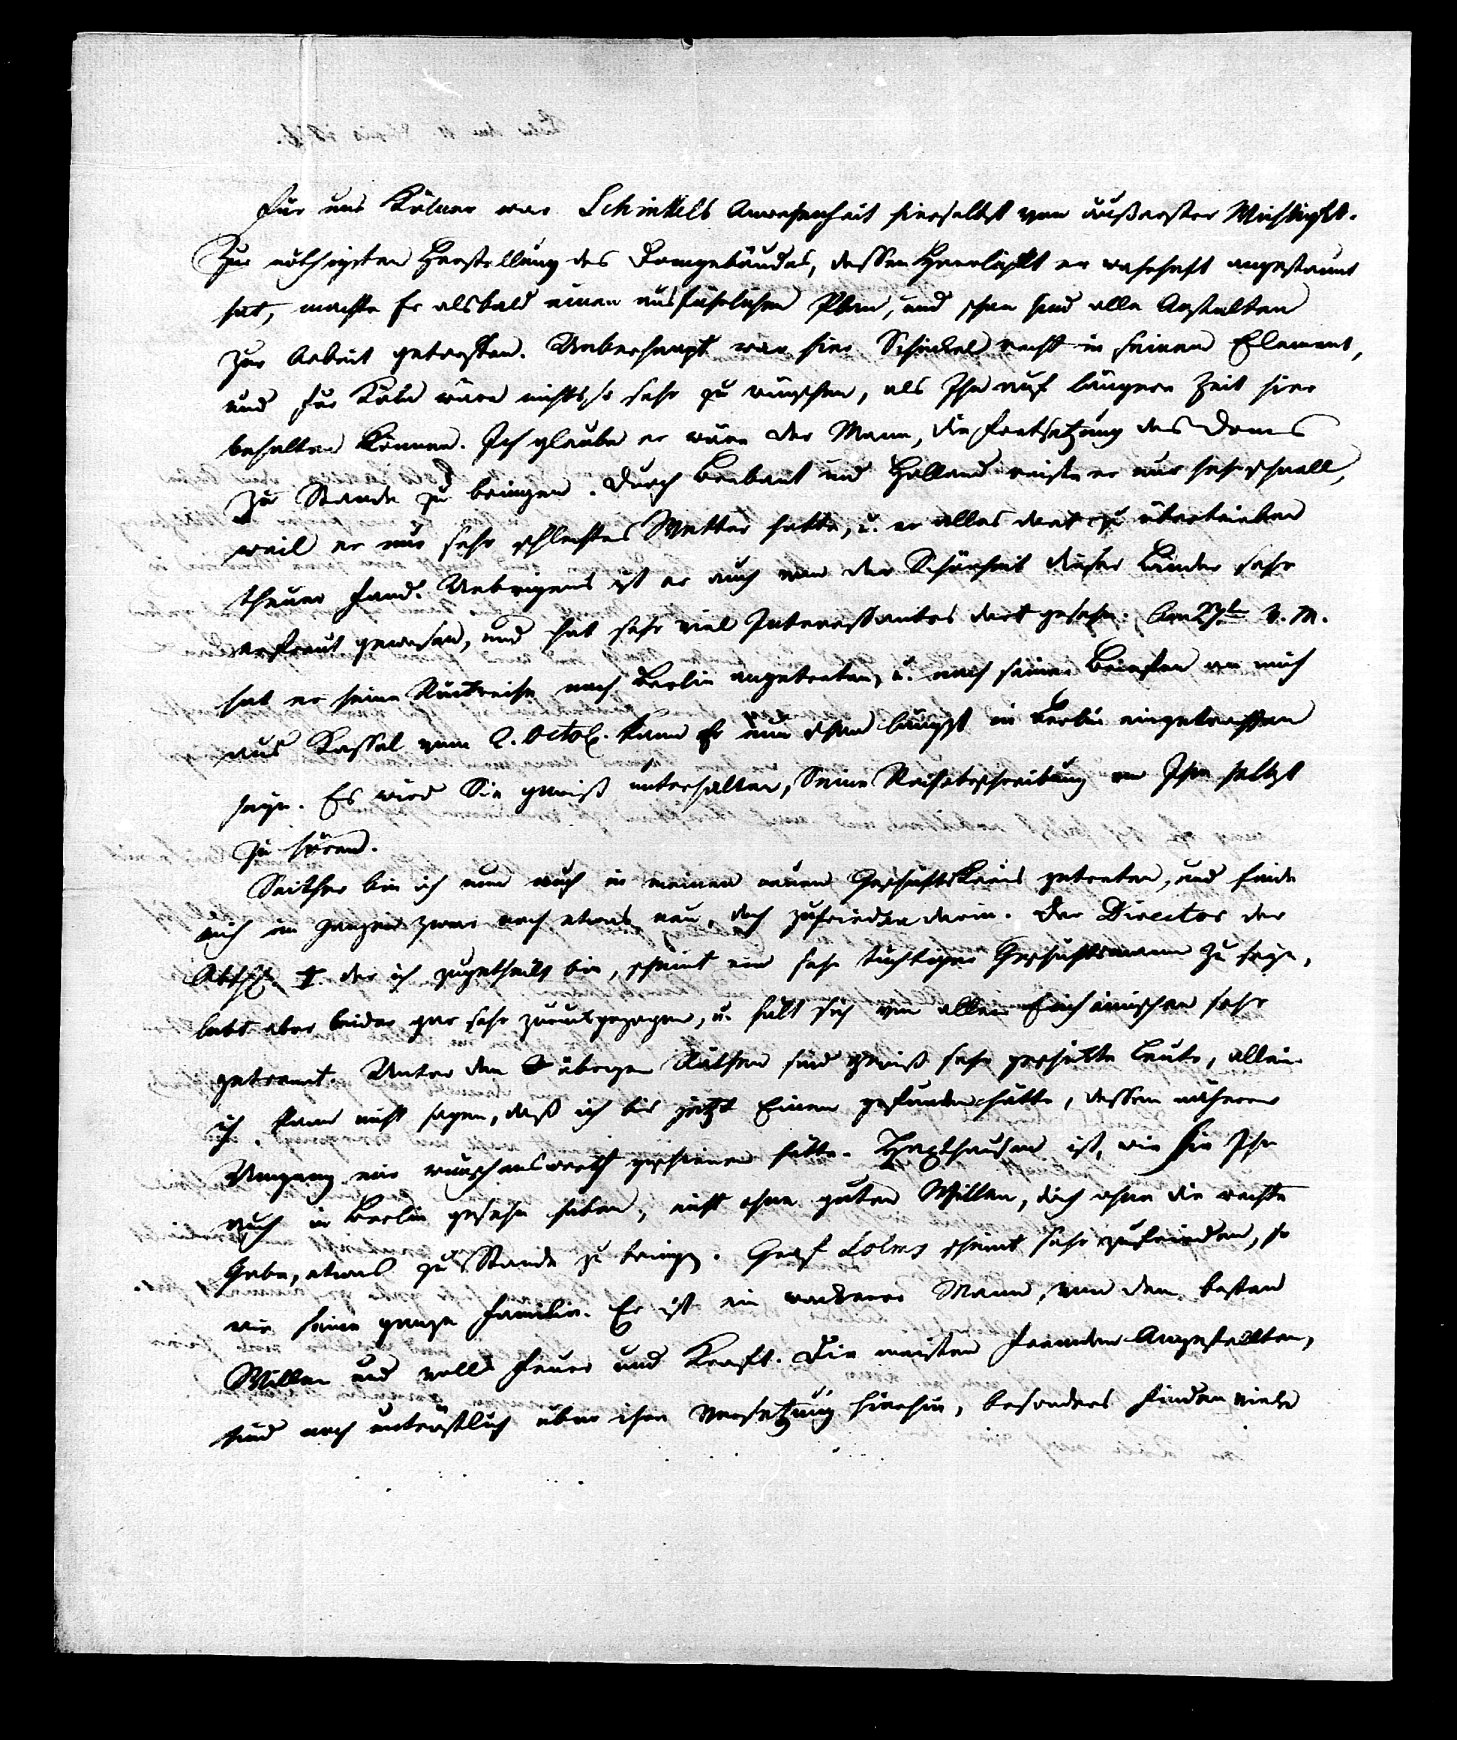 Für uns Kölner war Schinkels Anwesenheit hierselbst von äußerster Wichtigkt.
Zur nöthigsten Herstellung des Domgebäudes, dessen Herrlichkt er wahrhaft angestaunt
hat, machte Er alsbald einen ausführlichen Plan, und schon sind alle Anstalten
zur Arbeit getroffen. Ueberhaupt war hier Schinkel recht in seinem Element,
und für Köln wäre nichts so sehr zu wünschen, als Ihn auf längere Zeit hier
behalten können. Ich glaube er wäre der Mann, die Fortsetzung des Doms
zu Stande zu bringen. Durch Brabant und Holland reiste er nur sehr schnell,
weil er nur sehr schlechtes Wetter hatte, u. er alles dort zu übertrieben
theuer fand. Uebrigens ist er auch von der Schönheit dieser Länder sehr
erfreut gewesen, und hat sehr viel Interessantes dort gesehn. Am 27ten v. M.
hat er seine Rückreise nach Berlin angetreten, u. nach seinen Briefen an mich
aus Kassel vom 2. Octob. kann Er nun schon längst in Berlin eingetroffen
seyn. Es wird Sie gewiß unterhalten, Seine Reisebeschreibung von Ihm selbst
zu hören.
Seither bin ich nun auch in meinen neuen Geschäftskreis getreten, und finde
mich im Ganzen zwar noch etwas neu, doch zufrieden darin. Der Director der
Abthl. I. der ich zugetheilt bin, scheint ein sehr tüchtiger Geschäftsmann zu seyn,
lebt aber leider gar sehr zurückgezogen, u. hält sich von allen Einheimischen sehr
getrennt. Unter den übrigen Räthen sind gewiß sehr geschickte Leute, allein
ich kann nicht sagen, daß ich bis jetzt Einen gefunden hätte, dessen näherer
Umgang mir wünschenswerth geschienen hätte. Haxthausen ist, wie Sie Ihn
auch in Berlin gesehn haben, nicht ohne guten Willen, doch ohne die rechte
Gabe, etwas zu Stande zu bringen. Graf Solms scheint sehr zufrieden, so
wie seine ganze Familie. Er ist ein wackerer Mann, von dem besten
Willen und voll Feuer und Kraft. Die meisten fremden Angestellten,
sind noch untröstlich über ihre Versetzung hierhin, besonders finden viele